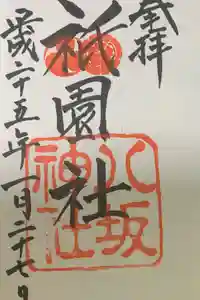 奉拝
祇園社
八坂
神社
平成二十五年一月二十七日